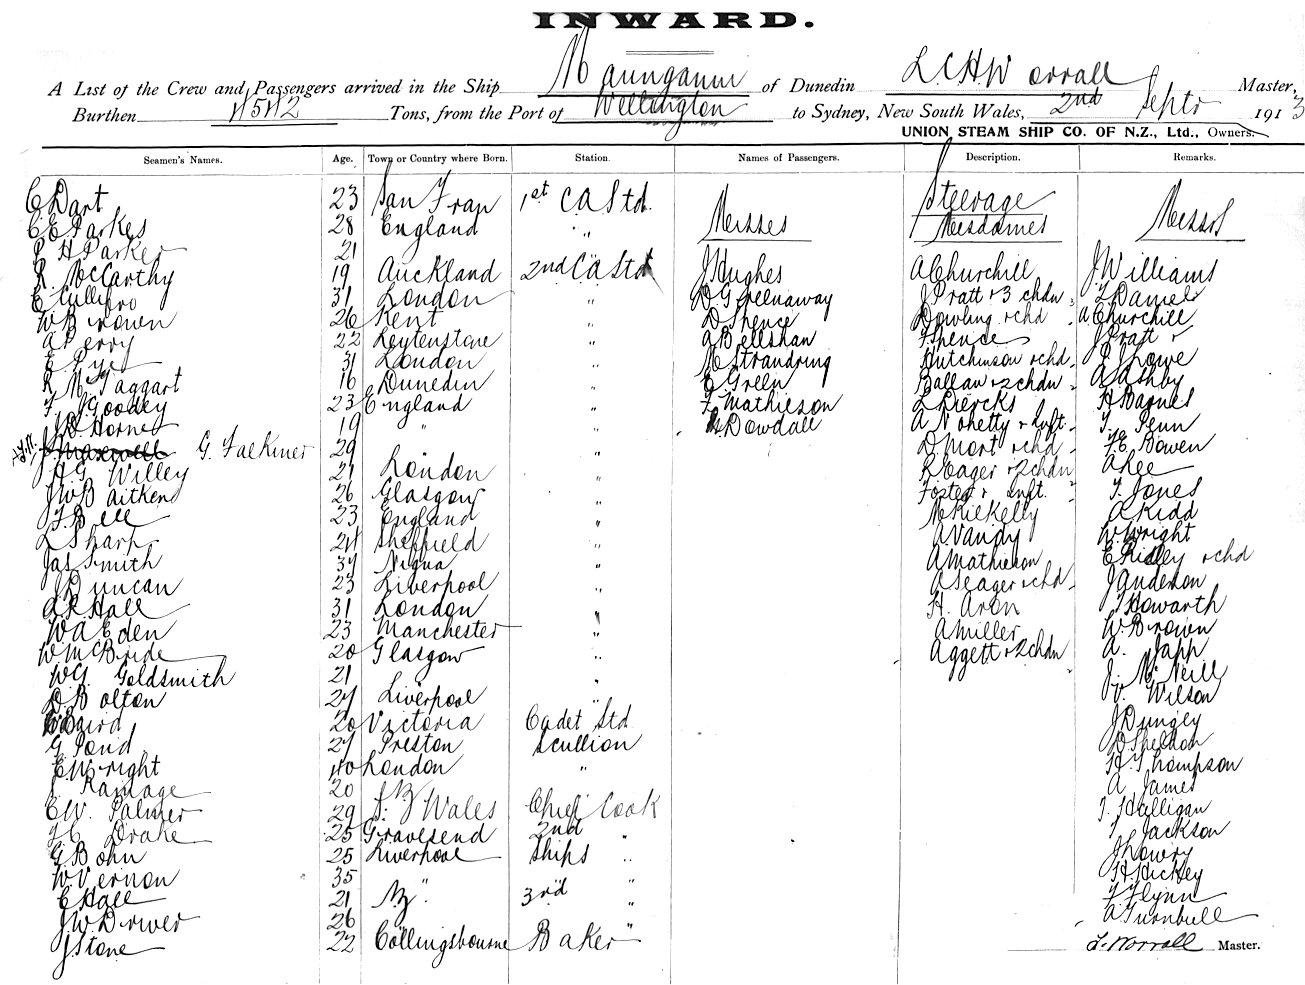 INWARD.
A List of the Crew and Passengers arrived in the Ship Maunganui of Dunedin L C H Worrall Master,
Burthen Tons, from the Port of Wellington to Sydney, New South Wales, 2nd Septr 1913
UNION STEAM SHIP CO. OF N.Z., Ltd., Owners.
Seamen's Names. Age. Town or Country where Born. Station. Names of Passengers. Description. Remarks.
C Dart 23 San Fran 1st CA Std.
C E Parkes 28 England "
P H Parker 21
R McCarthy 19 Auckland 2nd CA Std
E 31 London "
W Brown 26 Kent "
A Perry 22 Leytenstone "
E Pye 31 London "
R McTaggart 16 Dunedin "
F J Goodey 23 England "
J D Horne 19 " "
J Maxwell G. Falkiner 29
H G Willey 21 London "
J W B Aitken 26 Glasgow "
F Bell 23 England "
L Sharp 24 Sheffield "
Jas Smith 34 "
J Duncan 23 Liverpool "
A R Hall 31 London "
W A Eden 23 Manchester "
W McBride 20 Glasgow "
W G Goldsmith 21 "
D Bolton 24 Liverpool "
W Baird 20 Victoria Cadet Std
G Pond 27 Preston Scullion
E Wright 40 London "
J Ramage 20
E W. Palmer 29 S. Wales Chief Cook
H C Drake 25 Gravesend 2nd "
G Bohn 25 Liverpool Ships "
W. Vernon 35 "
C Hall 21 NZ 3rd "
J W Driver 26 "
J Stone 22 Collingsbourne Baker "
Misses
J Hughes
D. Greenaway
D Spence
A Bellshan
M Strandring
E Green
F Mathieson
Dowdall
Steerage
Mesdames
A Churchill
J Pratt & 3 chdn
Dowling & chd
F Spence
Hutchinson & chd
Ballan & 2 chdn
L Diercks
A Nohetty & Inft.
D Mort & chd
R Eager & 2 chdn
Foster & Inft.
M Kilkelly
A Vandy
A Mathieson
A Seager & chd
H. Aron
A Miller
Aggett & 2 chdn
Messrs
J Williams
L Daniels
A. Churchill
J Pratt
R Lowe
A Ashby
H Barnes
T. Penn
F. E. Bowen
A Lee
T. Jones
A Kidd
W. Wright
E Ridley & chd
J Anderson
T Howarth
W. Brown
A. Japp
J. McNeill
V. Wilson
J Dungey
D Sheldon
H. Thompson
A James
T. Halligan
T Jackson
J Lowry
H. Hickey
F Flynn
A Turnbull
L. Worrall Master.